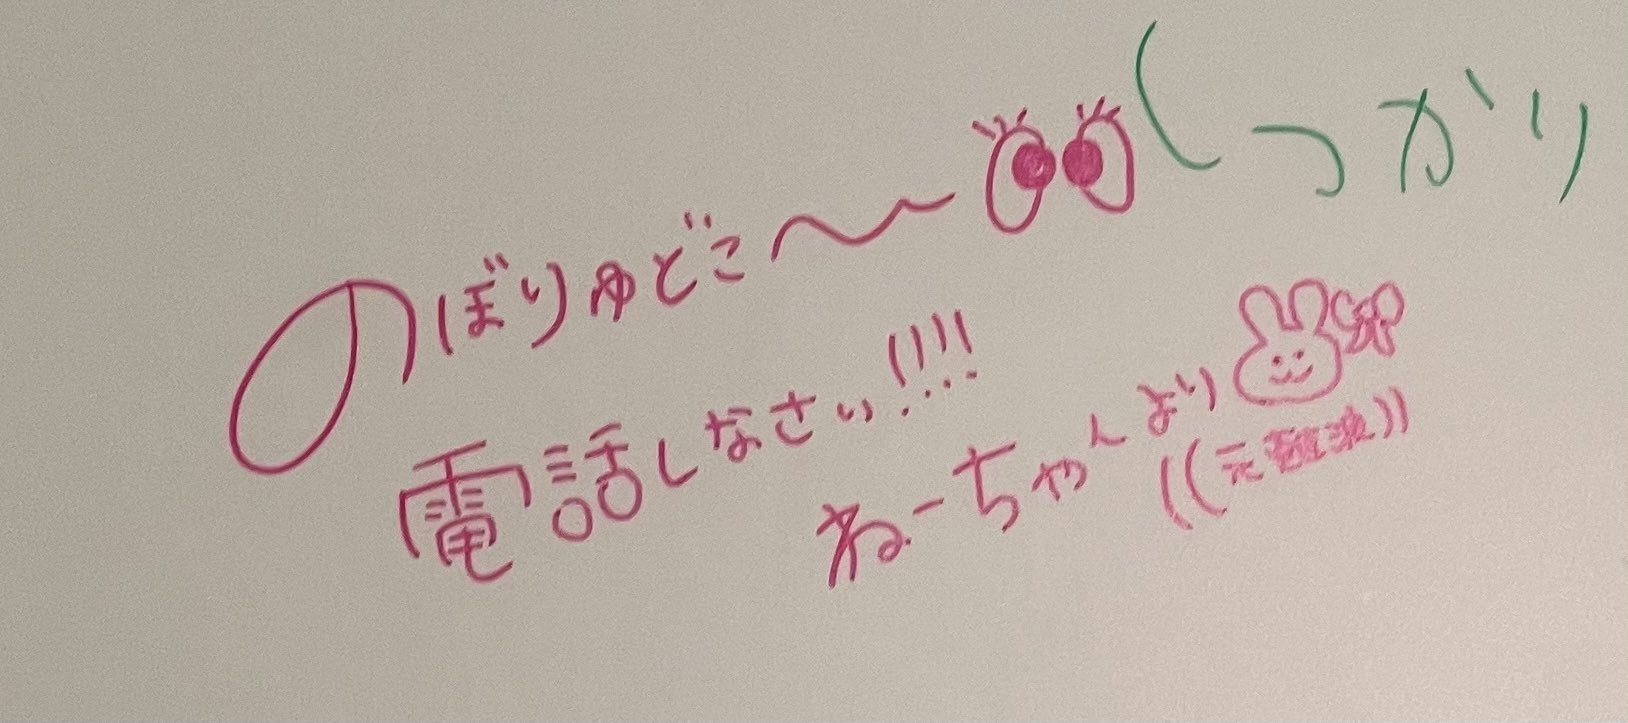 のぼりゅどこ〜 しっかり
電話しなさい!!!!
ねーちゃんより
((元